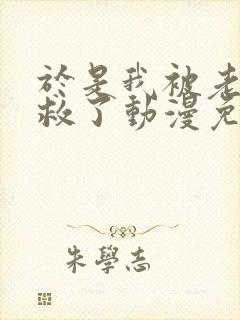 於是我被老
救了動漫免
朱學志